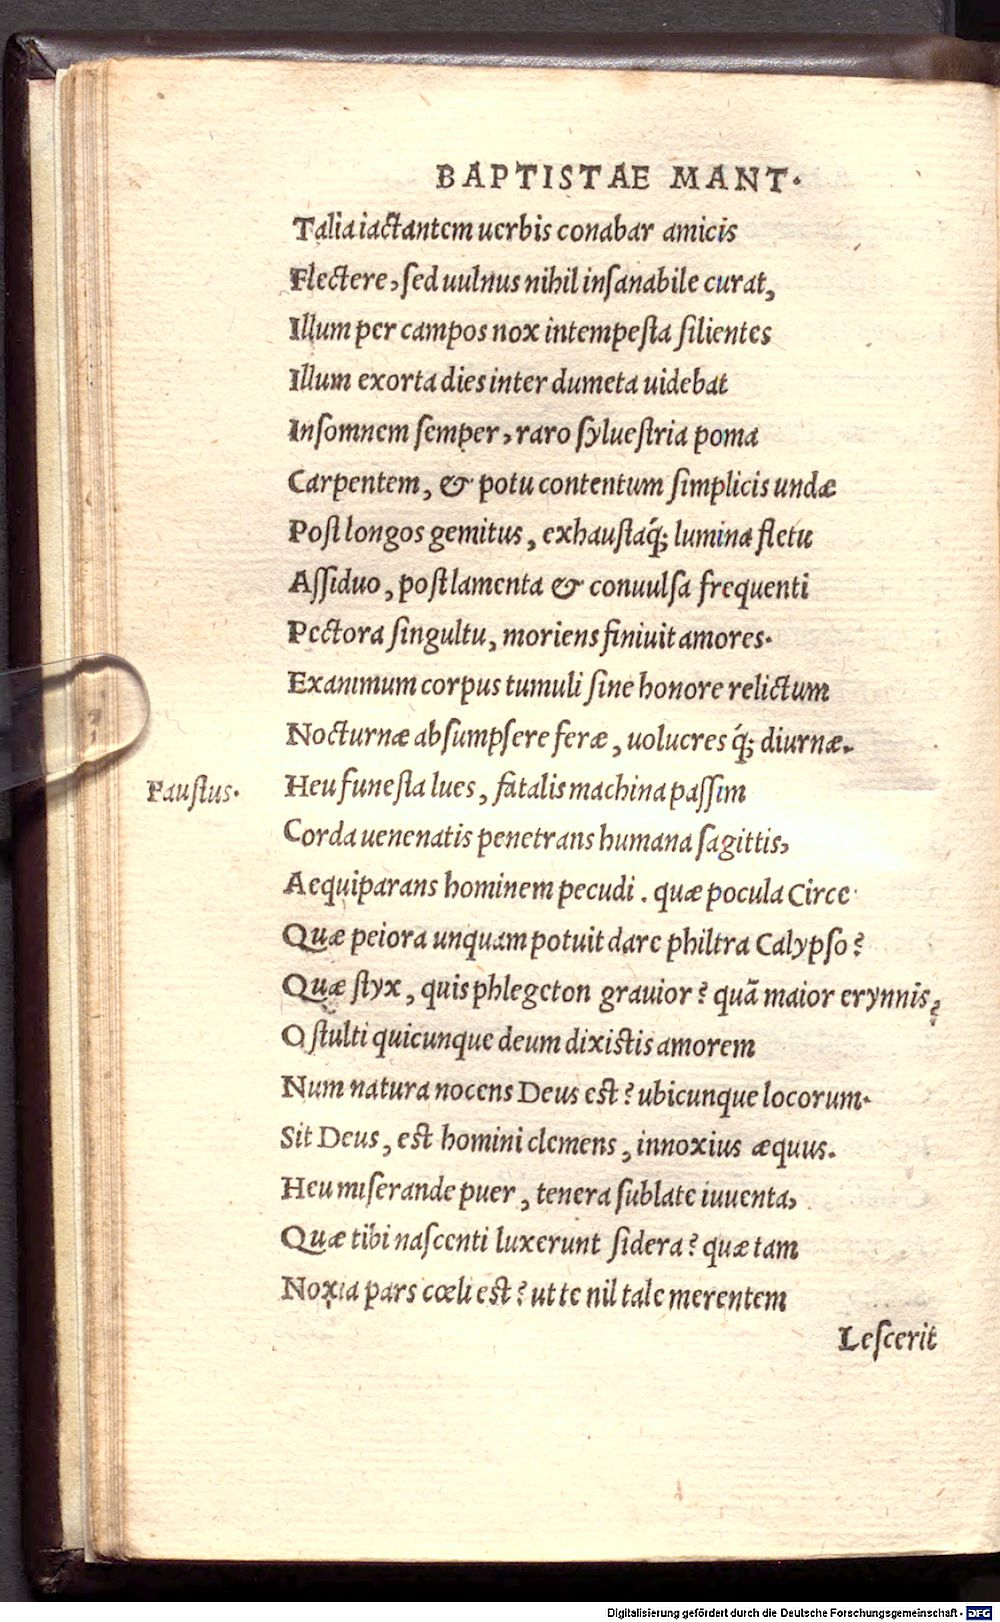 BAPTISTAE MANT.
Talia iactantem uerbis conabar amicis
Flectere, ſed uulnus nihil inſanabile curat,
Illum per campos nox intempeſta ſilientes
Illum exorta dies inter dumeta uidebat
Inſomnem ſemper, raro ſylueſtria poma
Carpentem, & potu contentum ſimplicis undæ
Poſt longos gemitus, exhauſtaq́; lumina fletu
Aſſiduo, poſt lamenta & conuulſa frequenti
Pectora ſingultu, moriens finiuit amores.
Exanimum corpus tumuli ſine honore relictum
Nocturnæ abſumpſere feræ, uolucres q́; diurnæ.
Fauſtus. Heu funeſta lues, fatalis machina paſſim
Corda uenenatis penetrans humana ſagittis,
Aequiparans hominem pecudi. quæ pocula Circe
Quæ peiora unquam potuit dare philtra Calypſo?
Quæ ſtyx, quis phlegeton grauior? quã maior erynnis?
O ſtulti quicunque deum dixistis amorem
Num natura nocens Deus est? ubicunque locorum.
Sit Deus, est homini clemens, innoxius æquus.
Heu miſerande puer, tenera ſublate iuuenta,
Quæ tibi naſcenti luxerunt ſidera? quæ tam
Noxia pars cœli est? ut te nil tale merentem
Leſcerit
Digitalisierung gefördert durch die Deutsche Forschungsgemeinschaft - DFG